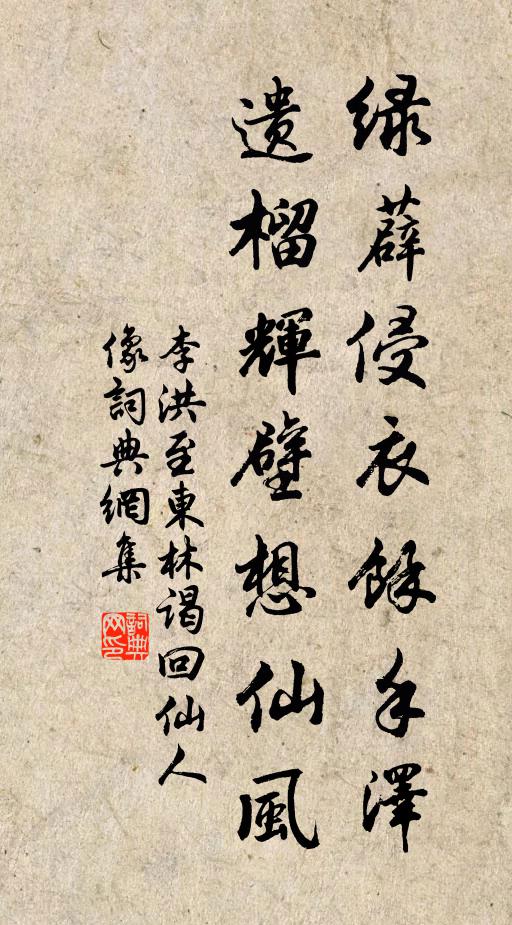 綠薜侵衣餘手澤
遺榴輝壁想仙風
李洪至東林謁回仙人
像詞典網集
詞典网印